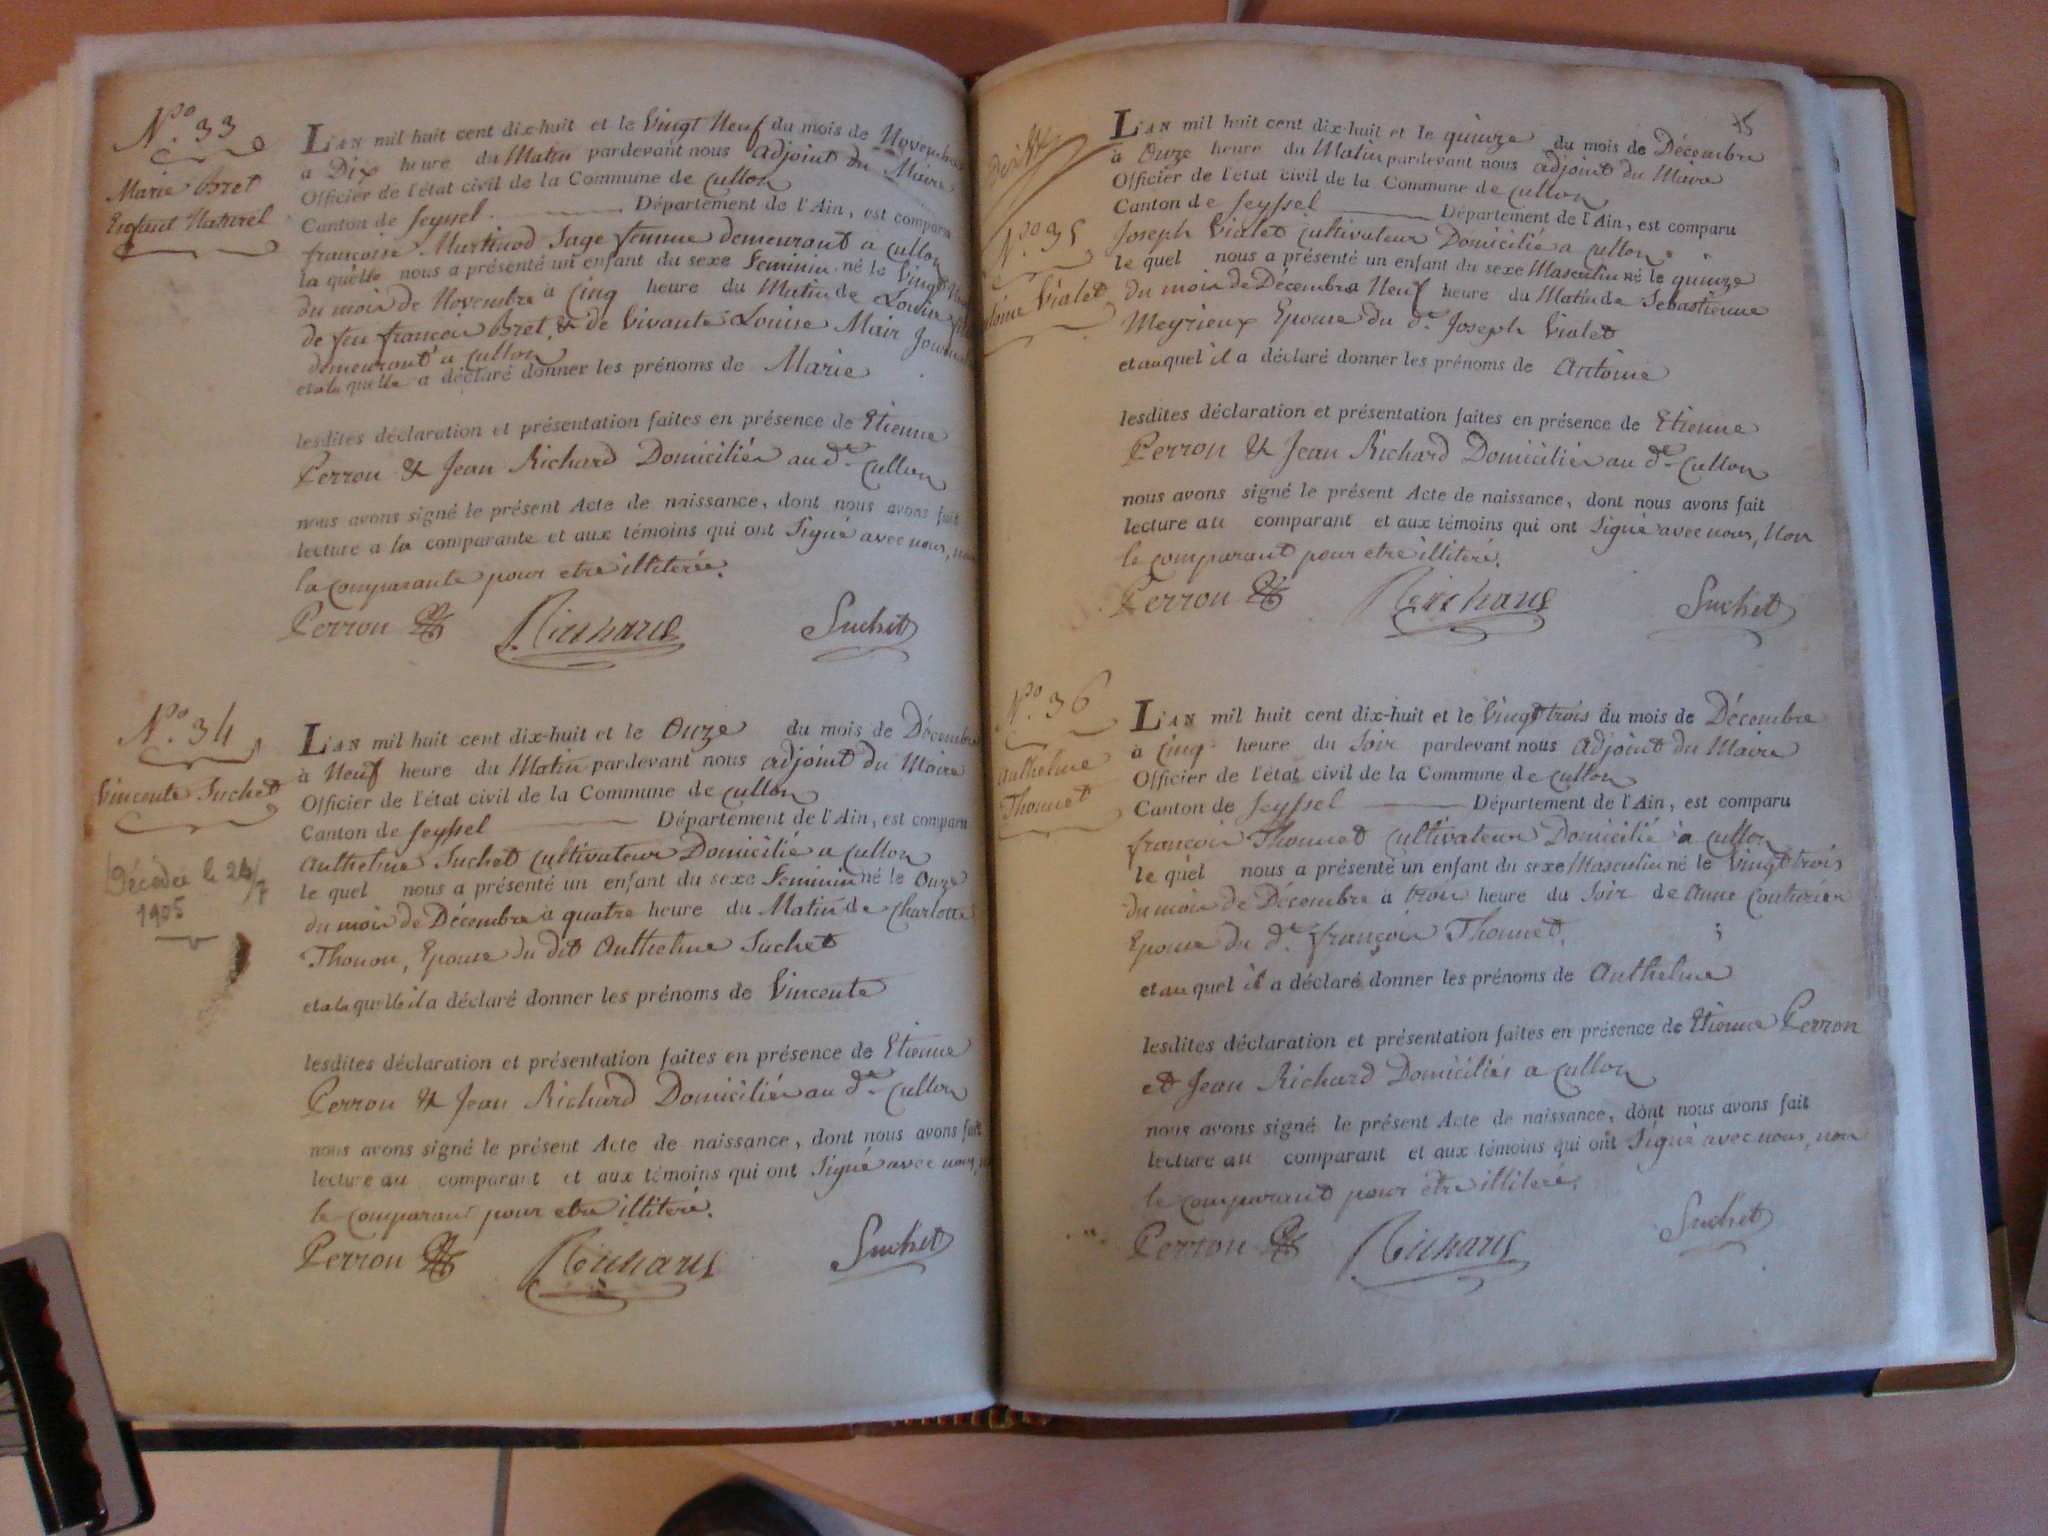 N.º 33
Marie Bret
Enfant Naturel
L'AN mil huit cent dix-huit et le Vingt Neuf du mois de Novembre
a Dix heure du Matin pardevant nous adjoint du Maire
Officier de l'état civil de la Commune de Cullon
Canton de Seyssel Département de l'Ain, est comparu
françoise Martinod Sage femme demeurant a Cullon
la quelle nous a présenté un enfant du sexe Feminin né le Vingt
du mois de Novembre à Cinq heure du Matin de Louise
de feu françois Bret & de Vivante Louise Mair
demeurant a Cullon
et a la quelle a déclaré donner les prénoms de Marie
lesdites déclaration et présentation faites en présence de Etienne
Perron & Jean Richard Domiciliés au d.e Cullon
nous avons signé le présent Acte de naissance, dont nous avons fait
lecture a la comparante et aux témoins qui ont Signé avec nous, non
la comparante pour etre illiterée.
Perron Richard Suchet
N.º 34
Vincente Suchet
Décédée le 24/7
1905
L'AN mil huit cent dix-huit et le Onze du mois de Décembre
à Neuf heure du Matin pardevant nous adjoint du Maire
Officier de l'état civil de la Commune de Cullon
Canton de Seyssel Département de l'Ain, est comparu
Anthelme Suchet Cultivateur Domicilié a Cullon
le quel nous a présenté un enfant du sexe Feminin né le Onze
du mois de Décembre à quatre heure du Matin de Charlotte
Thonon, Epouse du dit Anthelme Suchet
et a la quelle il a déclaré donner les prénoms de Vincente
lesdites déclaration et présentation faites en présence de Etienne
Perron & Jean Richard Domiciliés au d.e Cullon
nous avons signé le présent Acte de naissance, dont nous avons fait
lecture au comparant et aux témoins qui ont Signé avec nous,
le comparant pour etre illiteré.
Perron Richard Suchet
N.º 35
Vialet
L'AN mil huit cent dix-huit et le quinze du mois de Décembre
à Onze heure du Matin pardevant nous adjoint du Maire
Officier de l'état civil de la Commune de Cullon
Canton de Seyssel Département de l'Ain, est comparu
Joseph Vialet Cultivateur Domicilié a Cullon
le quel nous a présenté un enfant du sexe Masculin né le quinze
du mois de Décembre a Neuf heure du Matin de Sebastienne
Meyrieux Epouse du d.e Joseph Vialet
et auquel il a déclaré donner les prénoms de Antoine
lesdites déclaration et présentation faites en présence de Etienne
Perron & Jean Richard Domiciliés au d.e Cullon
nous avons signé le présent Acte de naissance, dont nous avons fait
lecture au comparant et aux témoins qui ont Signé avec nous, Non
le comparant pour etre illiteré.
Perron Richard Suchet
N.º 36
Anthelme
Thonnet
L'AN mil huit cent dix-huit et le Vingt trois du mois de Décembre
à Cinq heure du Soir pardevant nous adjoint du Maire
Officier de l'état civil de la Commune de Cullon
Canton de Seyssel Département de l'Ain, est comparu
françois Thonnet Cultivateur Domicilié a Cullon
le quel nous a présenté un enfant du sexe Masculin né le Vingt trois
du mois de Décembre a trois heure du Soir de Anne Couturier
Epouse du d.e françois Thonnet.
et au quel il a déclaré donner les prénoms de Anthelme
lesdites déclaration et présentation faites en présence de Etienne Perron
et Jean Richard Domiciliés a Cullon
nous avons signé le présent Acte de naissance, dont nous avons fait
lecture au comparant et aux témoins qui ont Signé avec nous, non
le comparant pour etre illiteré.
Perron Richard Suchet